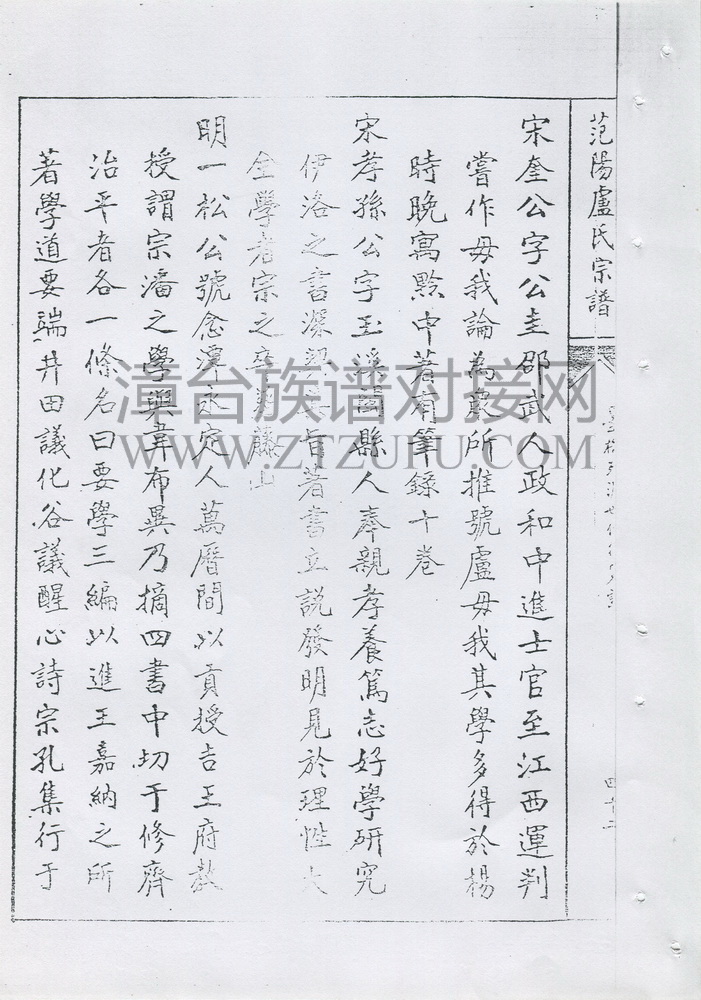 范陽盧氏宗譜
宋奎公字公圭邵武人政和中進士官至江西運判
嘗作毋我論為衆所推號盧毋我其學多得於楊
時晚寓黔中著有筆錄十卷
宋孝孫公字玉溪閩縣人奉親孝養篤志好學研究
伊洛之書深契旨著書立説發明見於理性大
全學者宗之卒藤山
明一松公號念潭永定人萬曆間以貢授吉王府教
授謂宗潘之學與韋布異乃摘四書中切于修齊
治平者各一條名曰要學三編以進王嘉納之所
著學道要端井田議化谷議醒心詩宗孔集行于
漳台族谱对接网
WWW.ZTZUPU.COM